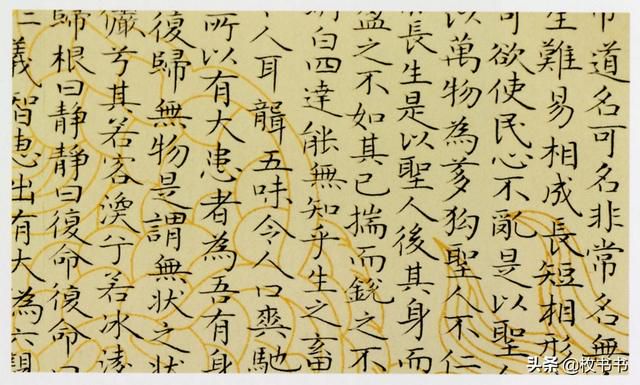 常道名可名非常名無
生難易相成長短相形
可欲使民心不亂是以聖
以萬物為芻狗聖人不仁
長生是以聖人後其身而
盈之不如其已揣而銳之不
明白四達能無知乎生之畜
人耳聾五味令人口爽馳
所以有大患者為吾有身
復歸無物是謂無状之状
儼兮其若客渙兮若冰凌
歸根曰静静曰復命復命
仁義智惠出有大為六親
头条 @枚书书